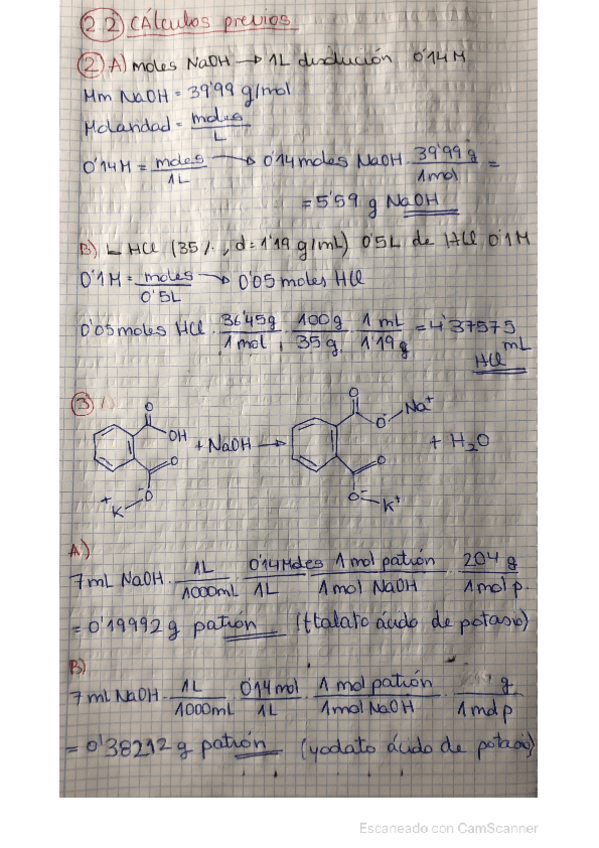 2.2 CÁlculos previos
2 A) moles NaOH → 1L disolución 0'14M
Mm NaOH = 39'99 g/mol
Molaridad = moles / L
0'14M = moles / 1L → 0'14 moles NaOH · 39'99 g / 1 mol =
= 5'59 g NaOH
B) HCl (35 %, d = 1'19 g/mL) 0'5L de HCl 0'1M
0'1M = moles / 0'5L → 0'05 moles HCl
0'05 moles HCl · 36'45g / 1 mol · 100g / 35 g · 1 mL / 1'19 g = 4'37575 mL
HCl
3
O
OH + NaOH →
O
O⁻
K⁺
O
O⁻ Na⁺
O
O⁻ K⁺
+ H₂O
A)
7 mL NaOH · 1L / 1000mL · 0'14 Moles / 1L · 1 mol patrón / 1 mol NaOH · 204 g / 1 mol p.
= 0'19992 g patrón (ftalato ácido de potasio)
B)
7 ml NaOH · 1L / 1000mL · 0'14 mol / 1L · 1 mol patrón / 1 mol NaOH · g / 1 mol p
= 0'38212 g patrón (yodato ácido de potasio)
Escaneado con CamScanner